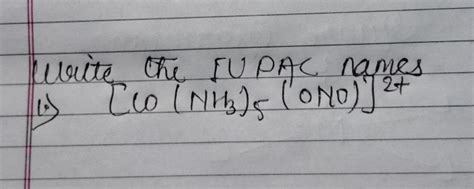 Write the IUPAC names
1) [CO(NH3)5(ONO)]2+